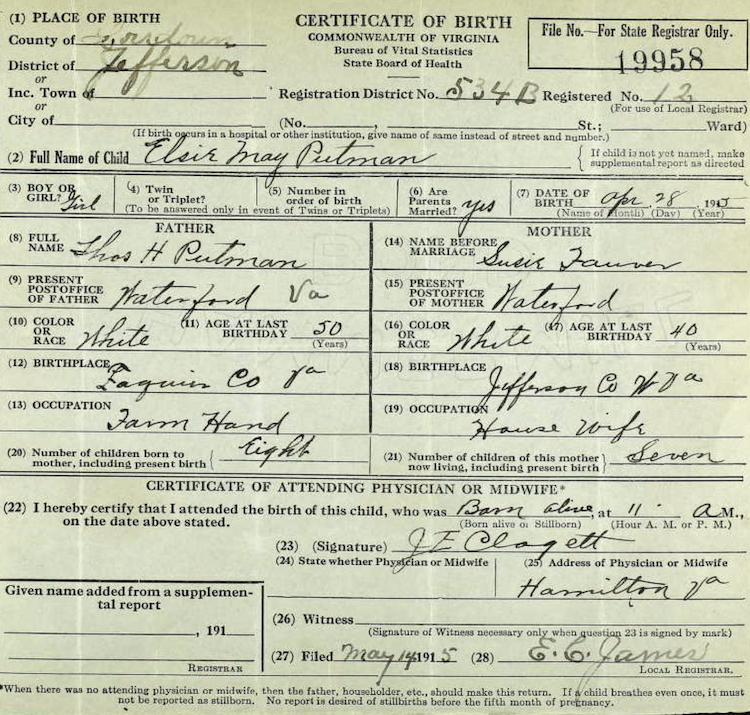 (1) PLACE OF BIRTH
County of Loudoun
District of Jefferson
or
Inc. Town of
or
City of
CERTIFICATE OF BIRTH
COMMONWEALTH OF VIRGINIA
Bureau of Vital Statistics
State Board of Health
File No.—For State Registrar Only.
19958
Registration District No. 534B Registered No. 12
(For use of Local Registrar)
(No. St.; Ward)
(If birth occurs in a hospital or other institution, give name of same instead of street and number.)
(2) Full Name of Child Elsie May Putman
{ If child is not yet named, make
supplemental report as directed
(3) BOY OR
GIRL? Girl
(4) Twin
or Triplet?
(5) Number in
order of birth
(To be answered only in event of Twins or Triplets)
(6) Are
Parents
Married? yes
(7) DATE OF
BIRTH Apr 28, 1915
(Name of Month) (Day) (Year)
FATHER
(8) FULL
NAME Thos H Putman
(9) PRESENT
POSTOFFICE
OF FATHER Waterford Va
(10) COLOR
OR
RACE White
(11) AGE AT LAST
BIRTHDAY 50
(Years)
(12) BIRTHPLACE
Faquier Co Va
(13) OCCUPATION
Farm Hand
(20) Number of children born to
mother, including present birth } Eight
MOTHER
(14) NAME BEFORE
MARRIAGE Susie Fauver
(15) PRESENT
POSTOFFICE
OF MOTHER Waterford
(16) COLOR
OR
RACE White
(17) AGE AT LAST
BIRTHDAY 40
(Years)
(18) BIRTHPLACE
Jefferson Co W Va
(19) OCCUPATION
House Wife
(21) Number of children of this mother
now living, including present birth } Seven
CERTIFICATE OF ATTENDING PHYSICIAN OR MIDWIFE*
(22) I hereby certify that I attended the birth of this child, who was Born alive, at 11 A M.,
on the date above stated. (Born alive or Stillborn) (Hour A. M. or P. M.)
(23) (Signature) J E Clagett
(24) State whether Physician or Midwife
(25) Address of Physician or Midwife
Hamilton Va
Given name added from a supplemen-
tal report
, 191
REGISTRAR
(26) Witness
(Signature of Witness necessary only when question 23 is signed by mark)
(27) Filed May 14 1915 (28) E. C. James
LOCAL REGISTRAR.
*When there was no attending physician or midwife, then the father, householder, etc., should make this return. If a child breathes even once, it must
not be reported as stillborn. No report is desired of stillbirths before the fifth month of pregnancy.